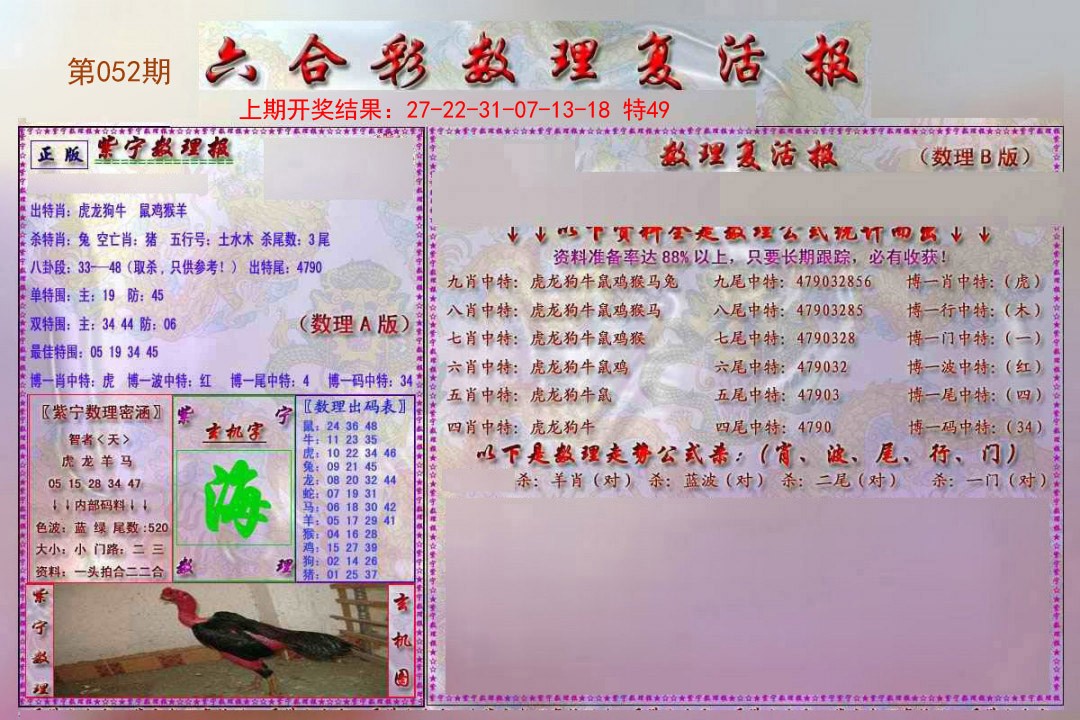 第052期
六合彩数理复活报
上期开奖结果：27-22-31-07-13-18 特49
正版 紫宁数理报
出特肖：虎龙狗牛 鼠鸡猴羊
杀特肖：兔 空亡肖：猪 五行号：土水木 杀尾数：3尾
八卦段：33--48（取杀，只供参考！） 出特尾：4790
单特围：主：19 防：45
双特围：主：34 44 防：06
（数理A版）
最佳特围：05 19 34 45
博一肖中特：虎 博一波中特：红 博一尾中特：4 博一码中特：34
〖紫宁数理密涵〗
智者<天>
虎龙羊马
05 15 28 34 47
↓↓内部码料↓↓
色波：蓝 绿 尾数:520
大小：小 门路：二 三
资料：一头拍合二二合
紫宁
玄机字
海
数理
〖数理出码表〗
鼠：24 36 48
牛：11 23 35
虎：10 22 34 46
兔：09 21 45
龙：08 20 32 44
蛇：07 19 31
马：06 18 30 42
羊：05 17 29 41
猴：04 16 28
鸡：15 27 39
狗：02 14 26
猪：01 25 37
紫宁数理
玄机图
数理复活报 （数理B版）
↓↓以下资料全是数理公式统计而出↓↓
资料准备率达88%以上，只要长期跟踪，必有收获！
九肖中特：虎龙狗牛鼠鸡猴马兔 九尾中特：479032856 博一肖中特：（虎）
八肖中特：虎龙狗牛鼠鸡猴马 八尾中特：47903285 博一行中特：（木）
七肖中特：虎龙狗牛鼠鸡猴 七尾中特：4790328 博一门中特：（一）
六肖中特：虎龙狗牛鼠鸡 六尾中特：479032 博一波中特：（红）
五肖中特：虎龙狗牛鼠 五尾中特：47903 博一尾中特：（四）
四肖中特：虎龙狗牛 四尾中特：4790 博一码中特：（34）
以下是数理走势公式杀：（肖、波、尾、行、门）
杀：羊肖（对） 杀：蓝波（对） 杀：二尾（对） 杀：一门（对）